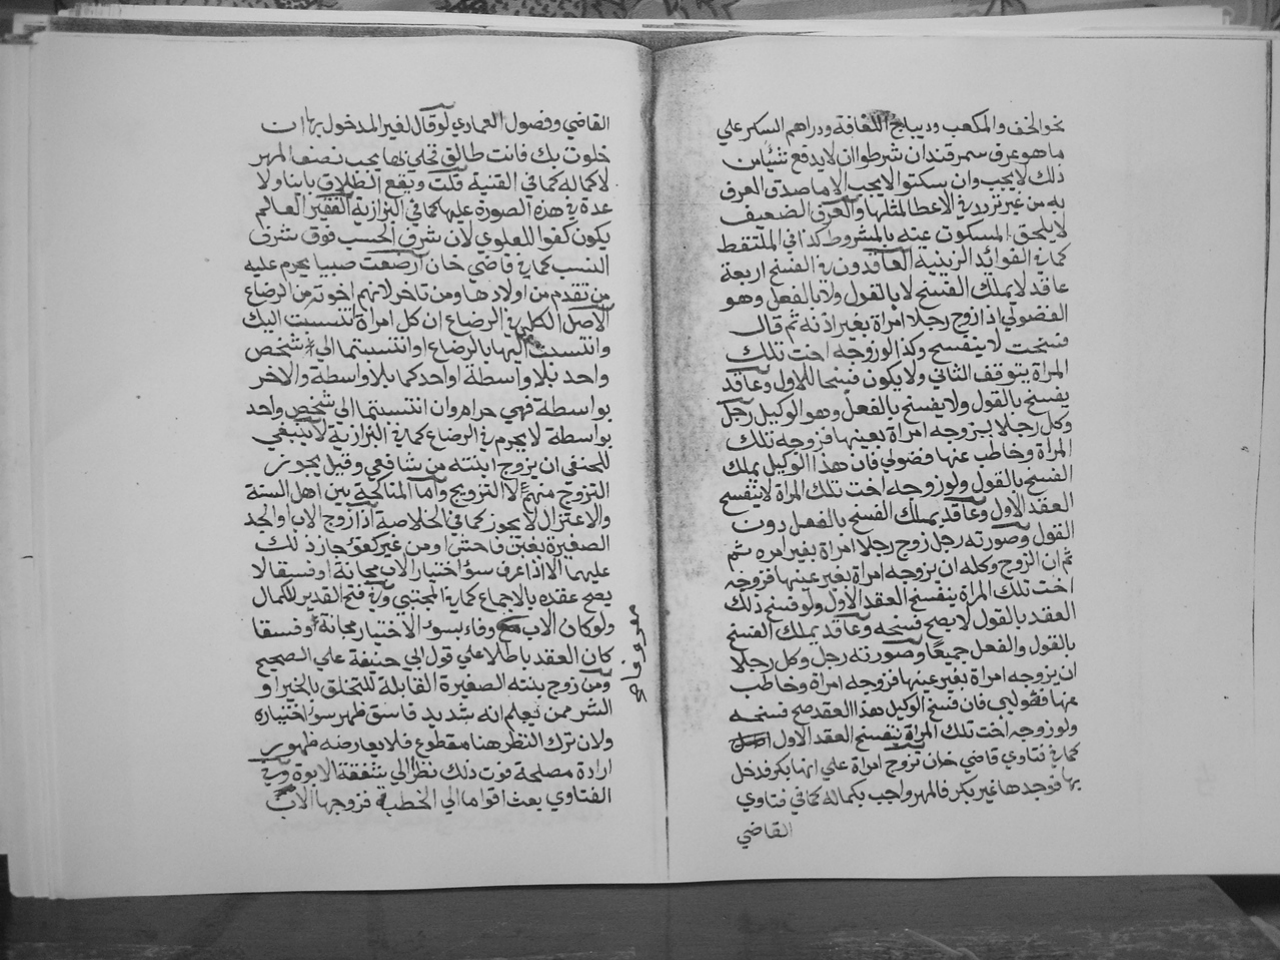 نحو الخف والمكعب وديباج اللفافة ودراهم السكر علي
ما هو عرف سمرقند ان شرطوا ان لا يدفع شئا من
ذلك لا يجب وان سكتوا لا يجب الا ما صدق العرف
به من غير تزيد في الاعطا لمثلها والعرف الضعيف
لا يلحق المسكوت عنه بالمشروط كذا في الملتقط
كما في الفوائد الزينية العاقدون في الفسخ اربعة
عاقد لا يملك الفسخ لا بالقول ولا بالفعل وهو
الفضولي اذا زوج رجلا امراة بغير اذنه ثم قال
فسخت لا ينفسخ وكذا لو زوجه اخت تلك
المراة يتوقف الثاني ولا يكون فسخا للاول وعاقد
يفسخ بالقول ولا يفسخ بالفعل وهو الوكيل رجل
وكل رجلا ليزوجه امراة بعينها فزوجه تلك
المراة وخاطب عنها فضولي فان هذا الوكيل يملك
الفسخ بالقول ولو زوجه اخت تلك المراة لا ينفسخ
العقد الاول وعاقد يملك الفسخ بالفعل دون
القول وصورته رجل زوج رجلا امراة بغير امره ثم
ثم ان الزوج وكله ان يزوجه امراة بغير عينها فزوجه
اخت تلك المراة ينفسخ العقد الاول ولو فسخ ذلك
العقد بالقول لا يصح فسخه وعاقد يملك الفسخ
بالقول والفعل جميعا وصورته رجل وكل رجلا
ان يزوجه امراة بغير عينها فزوجه امراة وخاطب
عنها فضولي فان فسخ الوكيل هذا العقد صح فسخه
ولو زوجه اخت تلك المراة ينفسخ العقد الاول
كما في فتاوي قاضي خان تزوج امراة علي انها بكر فدخل
بها فوجدها غير بكر فالمهر واجب بكماله كما في فتاوي
القاضي
القاضي وفصول العمادي لو قال لغير المدخول بها ان
خلوت بك فانت طالق تخلي بها يجب نصف المهر
لا كماله كما في القنية قلت ويقع الطلاق باينا ولا
عدة في هذه الصورة عليها كما في البزازية الفقير العالم
يكون كفوا للعلوي لان شرف الحسب فوق شرف
النسب كما في قاضي خان ارضعت صبيا يحرم عليه
من تقدم من اولادها ومن تاخر لانهم اخوته من الرضاع
الاصل الكلي في الرضاع ان كل امراة انتسبت اليك
وانتسبت اليها بالرضاع او انتسبتما الي شخص
واحد بلا واسطة او احدكما بلا واسطة والاخر
بواسطة فهي حرام وان انتسبتما الي شخص واحد
بواسطة لا يحرم في الرضاع كما في البزازية لا ينبغي
للحنفي ان يزوج ابنته من شافعي وقيل يجوز
التزوج منهم لا التزويج واما المناكحة بين اهل السنة
والاعتزال لا يجوز كما في الخلاصة اذا زوج الاب او الجد
الصغيرة بغبن فاحش او من غير كفؤ جاز ذلك
عليهما الا اذا عرف سؤ اختيار الاب مجانة او فسقا لا
يصح عقده بالاجماع كما في المجتبي وفي فتح القدير للكمال
ولو كان الاب معروفا بسوء الاختيار مجانة او فسقا
كان العقد باطلا علي قول ابي حنيفة علي الصحيح
ومن زوج بنته الصغيرة القابلة للتخلق بالخير او
الشر ممن يعلم انه شديد فاسق ظهر سؤ اختياره
ولان ترك النظر هنا مقطوع فلا يعارضه ظهور
ارادة مصلحة فوت ذلك نظرا الي شفقة الابوة وفي
الفتاوي بعث اقواما الي الخطبة فزوجها الاب
معروفا صح